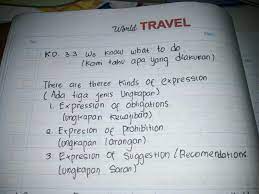 World TRAVEL
KD. 3.3 We know what to do
(Kami tahu apa yang dilakukan)
There are theree kinds of expression
(Ada tiga jenis Ungkapan)
1. Expression of obligations
(ungkapan kewajiban)
2. Exprecion of prohibition
(ungkapan larangan)
3. Expresion of suggestion (Recomendations
(ungkapan Saran)